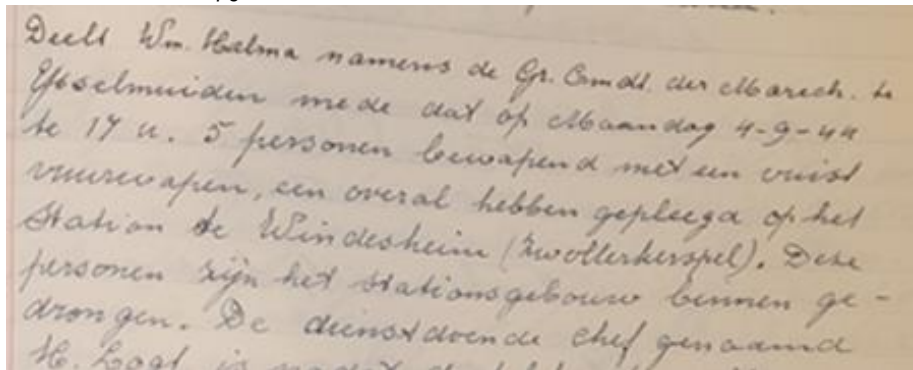 Deelt Wm. Halma namens de Gr. Cmdt. der Marech. te
IJsselmuiden mede dat op Maandag 4-9-44
te 17 u. 5 personen bewapend met een vuist
vuurwapen, een overal hebben gepleegd op het
Station te Windesheim (Zwollerkerspel). Deze
personen zijn het stationsgebouw binnen ge-
drongen. De dienstdoende chef genaamd
H. is